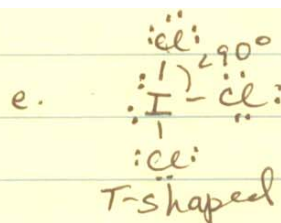 :Cl:
<90°
e. :I - Cl:
:Cl:
T-shaped